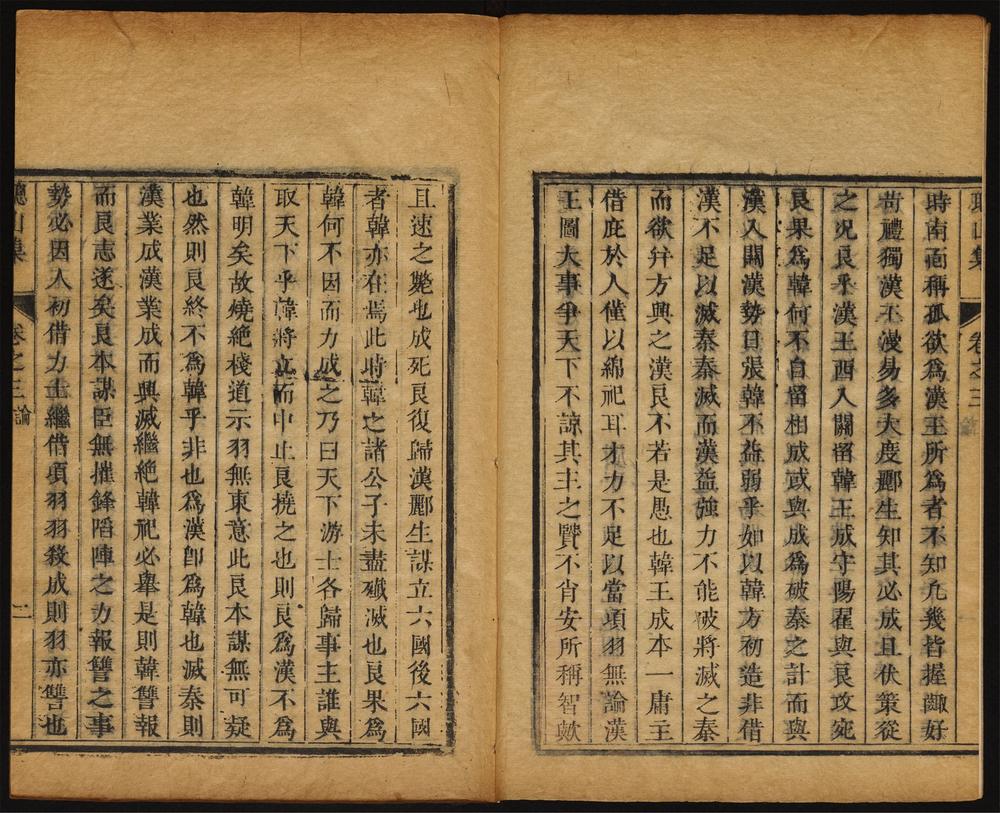 聰山集 卷之三
時南面稱孤欲爲漢王所爲者不知凡幾皆握齱好
苛禮獨漢王漫易多大度酈生知其必成且伏策從
之况良乎漢王西入關留韓王成守陽翟與良攻宛
良果爲韓何不自留相成或與成爲破秦之計而與
漢入關漢勢日張韓不益弱乎如以韓方初造非借
漢不足以滅秦秦滅而漢益強力不能破將滅之秦
而欲弁方興之漢良不若是愚也韓王成本一庸主
借庇於人僅以綿祀耳才力不足以當項羽無論漢
王圖大事爭天下不諒其主之賢不肖安所稱智歟
且速之斃也成死良復歸漢酈生謀立六國後六國
者韓亦在焉此時韓之諸公子未盡殱滅也良果爲
韓何不因而力成之乃曰天下游士各歸事主誰與
取天下乎韓將立而中止良撓之也則良爲漢不爲
韓明矣故燒絶棧道示羽無東意此良本謀無可疑
也然則良終不爲韓乎非也爲漢卽爲韓也滅秦則
漢業成漢業成而興滅繼絶韓祀必舉是則韓讐報
而良志遂矣良本謀臣無摧鋒陷陣之力報讐之事
勢必因人初借力士繼借項羽羽殺成則羽亦讐也
聰山集 卷之三 論 二